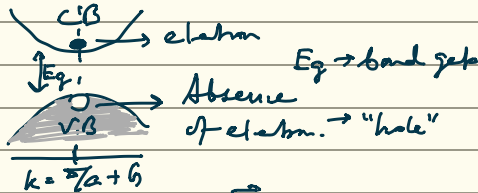 CB
→ eletron
Eg
Eg → band
→ Absence
V.B
of eletron. → "hole"
k = π/a + G